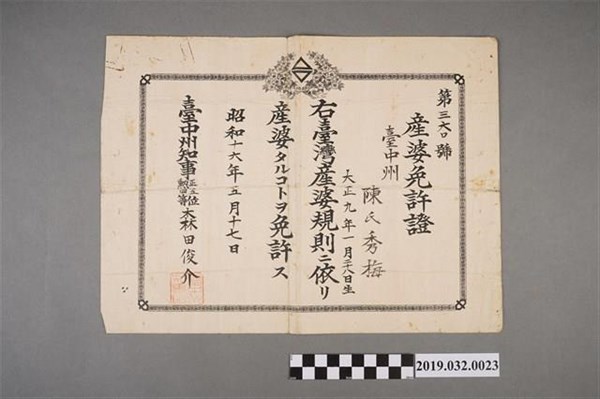 第三六〇號
産婆免許證
臺中州
陳氏秀梅
大正九年一月二十八日生
右臺灣産婆規則ニ依リ
産婆タルコトヲ免許ス
昭和十六年五月十七日
臺中州知事正五位勳四等森田俊介
2019.032.0023